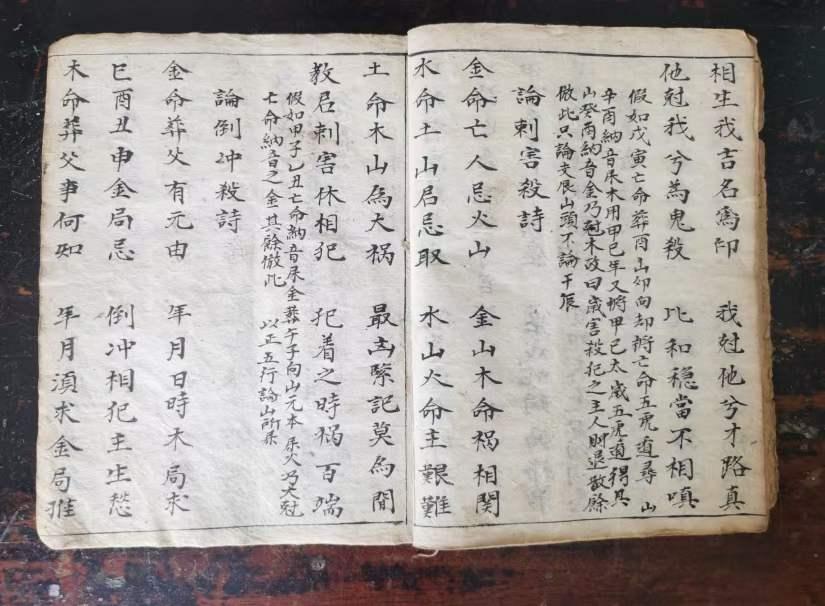 相生我吉名為印　我尅他兮才路真
他尅我兮為鬼殺　比和穩當不相嗔
假如戊寅亡命葬酉山卯向却將亡命五虎遁尋山
辛酉納音屬木用甲己年又將甲己太歲五虎遁得其
山癸酉納音金乃尅木故曰歲害殺犯之主人財退敗餘
倣此只論支辰山頭不論干辰
論刺害殺詩
金命亡人忌火山　金山木命禍相関
水命土山君忌取　水山火命主艱難
土命木山為大禍　最凶緊記莫為閒
教君刺害休相犯　犯着之時禍百端
假如甲子乙丑亡命納音屬金葬午子向山元本屬火乃大尅
亡命納音之金其餘倣此　以正五行論山所屬
論倒冲殺詩
金命葬父有元由　年月日時木局求
巳酉丑申金局忌　倒冲相犯主生愁
木命葬父事何如　年月須求金局推